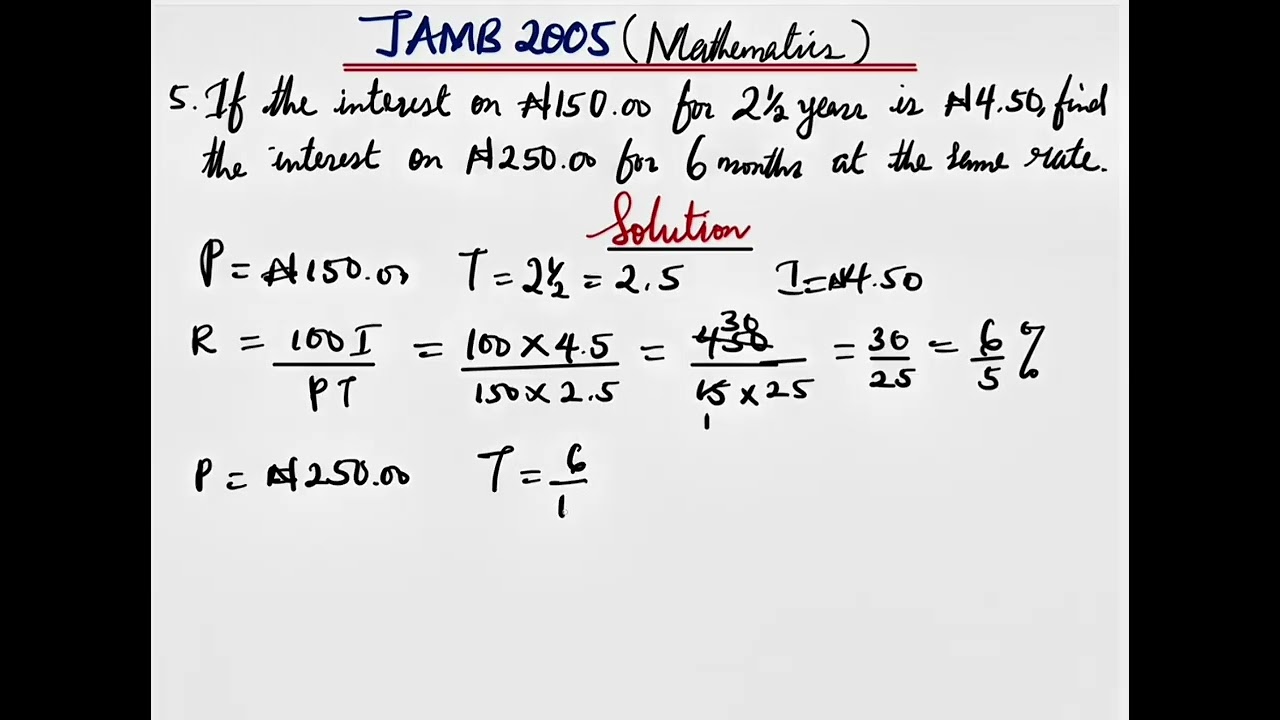 JAMB 2005 (Mathematics)
5. If the interest on ₦150.00 for 2½ years is ₦4.50, find
the interest on ₦250.00 for 6 months at the same rate.
Solution
P = ₦150.00 T = 2½ = 2.5 I = ₦4.50
R = 100I/PT = 100 × 4.5/150 × 2.5 = 30 450/15 × 25 1 = 30/25 = 6/5 %
P = ₦250.00 T = 6/1